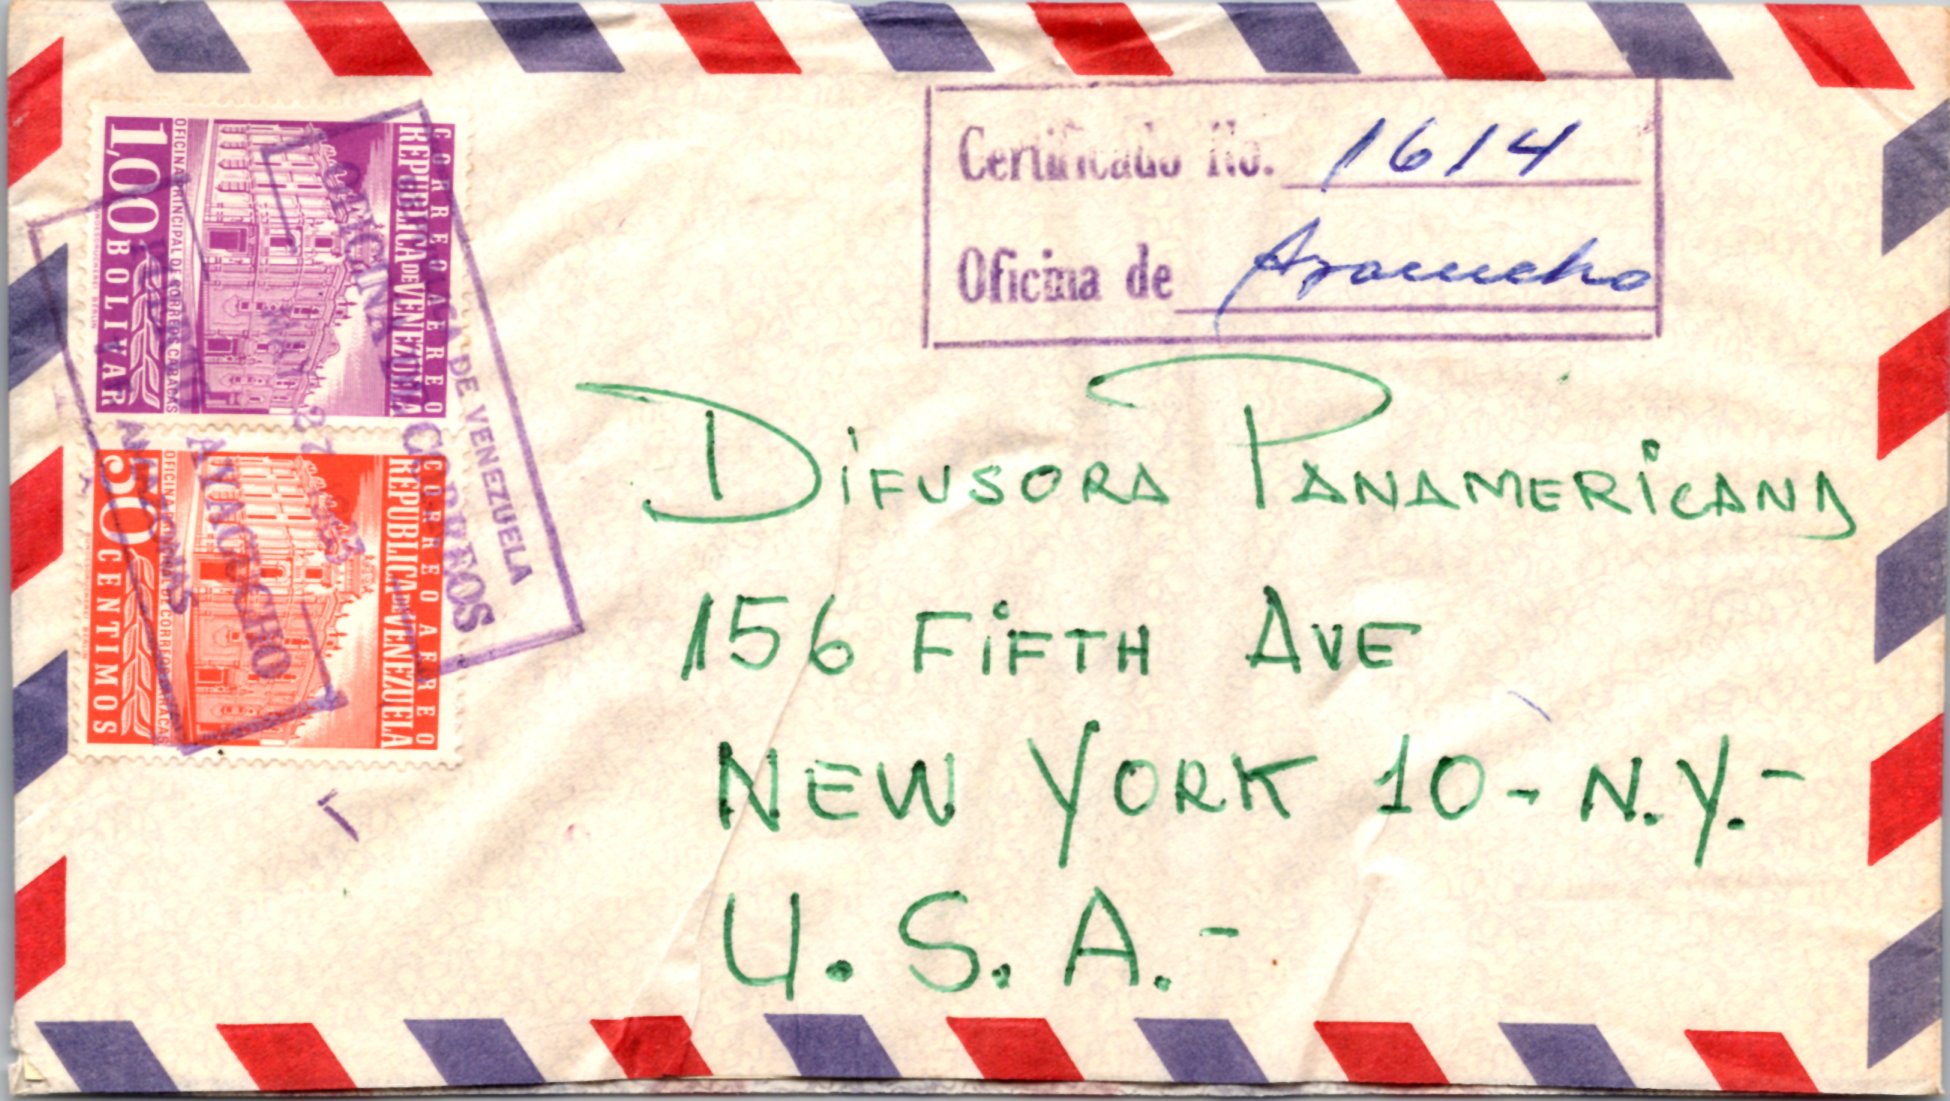 Certificado No. 1614
Oficina de Ayacucho
CORREO AEREO
REPUBLICA DE VENEZUELA
OFICINA PRINCIPAL DE CORREOS CARACAS
1,00 BOLIVAR
CORREO AEREO
REPUBLICA DE VENEZUELA
OFICINA PRINCIPAL DE CORREOS CARACAS
50 CENTIMOS
DE VENEZUELA
OFICINA CORREOS
AYACUCHO
AMAZONAS
DIFUSORA PANAMERICANA
156 FIFTH AVE
NEW YORK 10 - N.Y.-
U.S.A.-